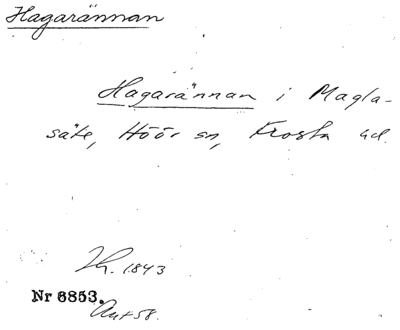 Hagarännan
Hagarännan i Magla-
säte, Höör sn, Frosta hd.
1843
Nr 6853.